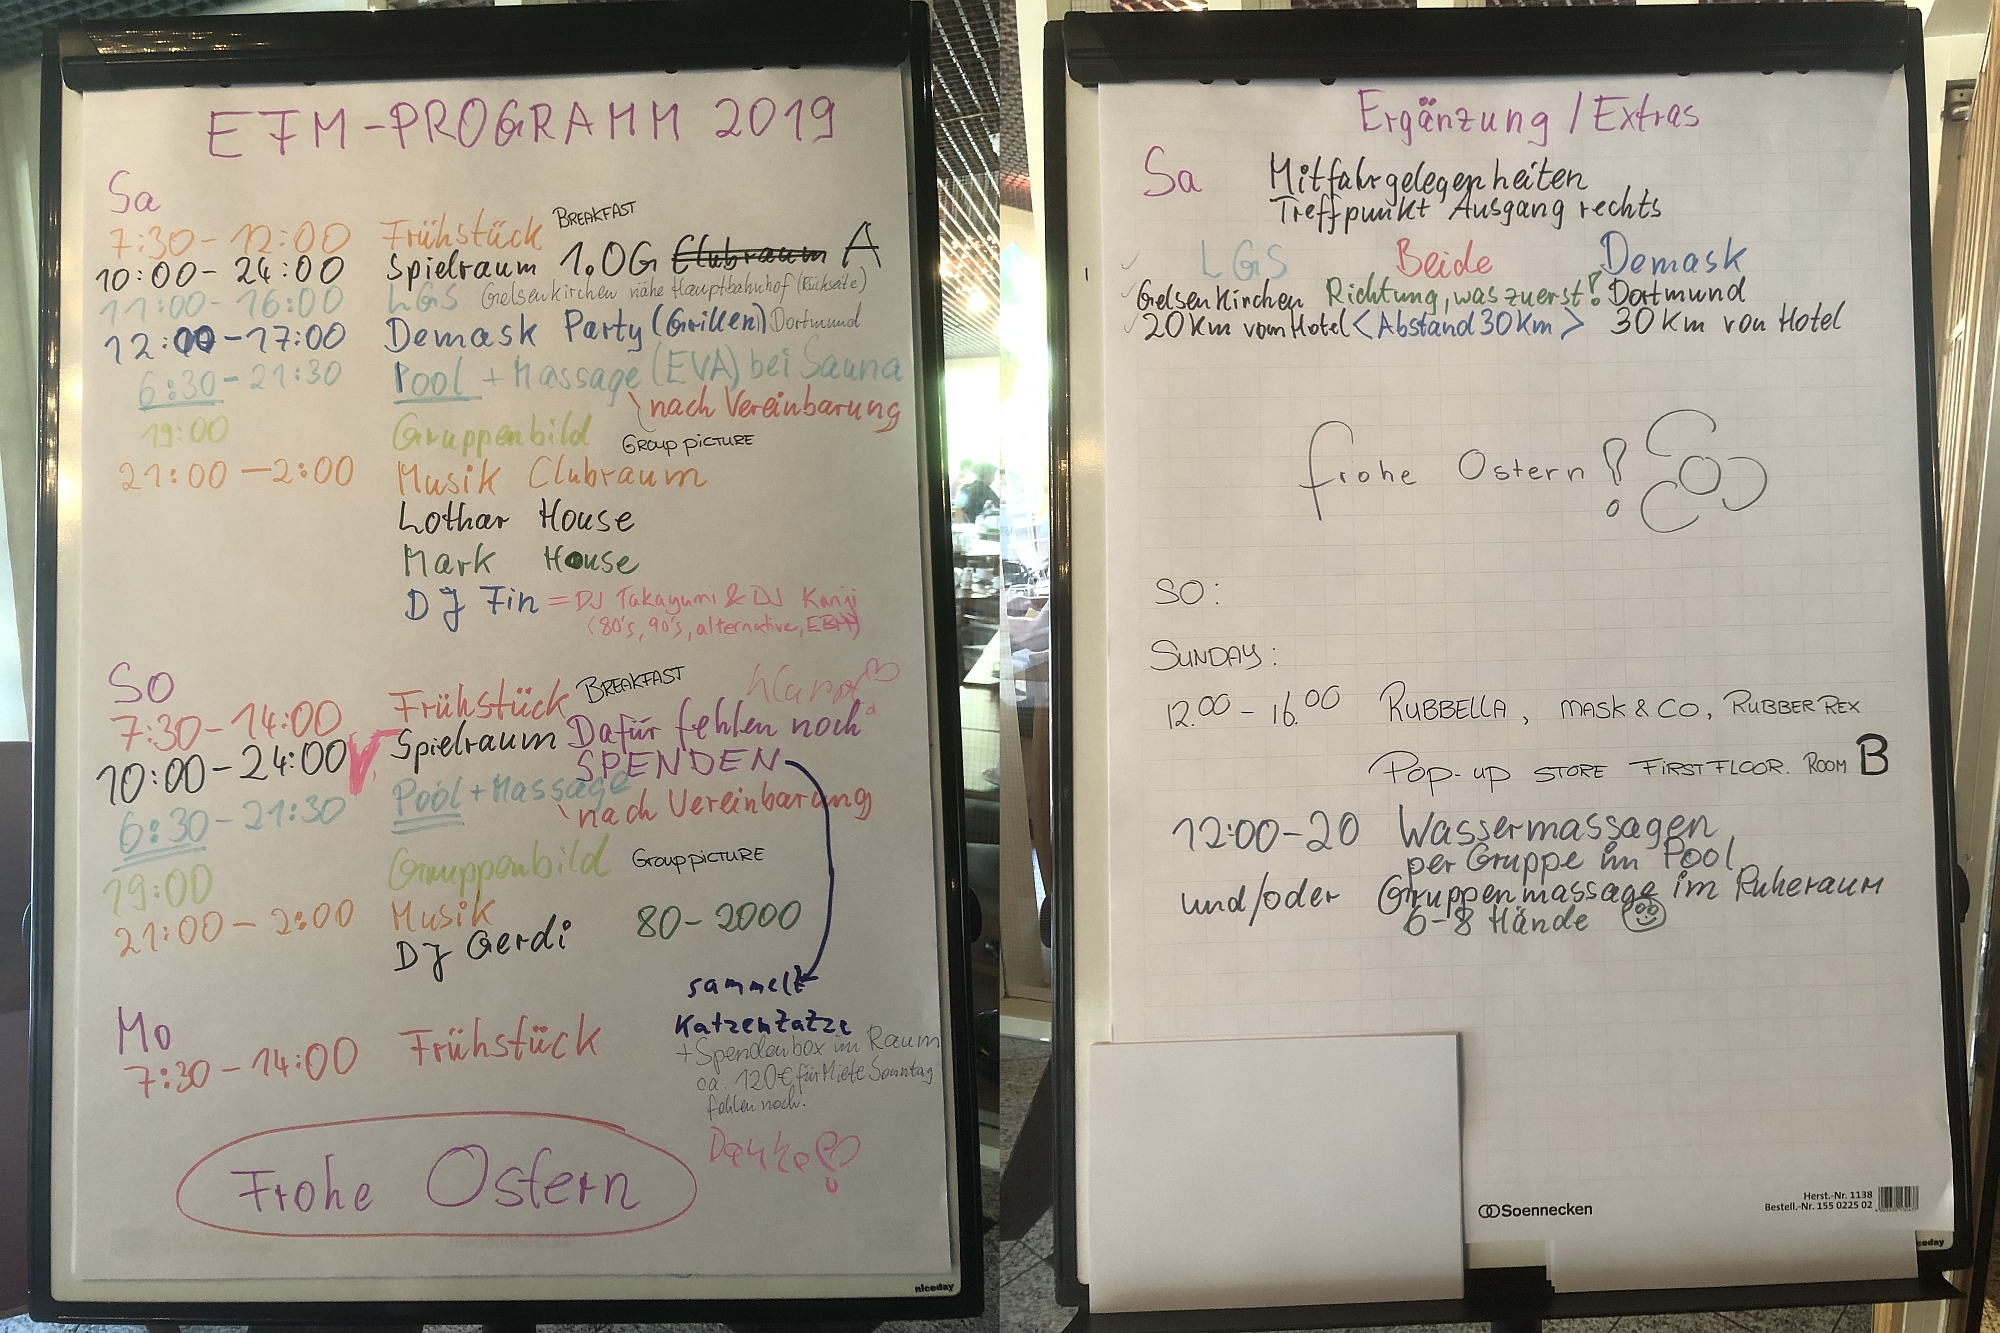 EFM-PROGRAMM 2019
Sa
7:30-12:00 Frühstück BREAKFAST
10:00-24:00 Spielraum 1.OG Clubraum A
11:00-16:00 LGS Gelsenkirchen nähe Hauptbahnhof (Rückseite)
12:00-17:00 Demask Party (Grillen) Dortmund
6:30-21:30 Pool + Massage (EVA) bei Sauna
nach Vereinbarung
19:00 Gruppenbild GROUP PICTURE
21:00-2:00 Musik Clubraum
Lothar House
Mark House
DJ Fin = DJ Takayumi & DJ Kanji
(80's, 90's, alternative, EBM)
So
7:30-14:00 Frühstück BREAKFAST
10:00-24:00 Spielraum Dafür fehlen noch
SPENDEN
6:30-21:30 Pool + Massage
nach Vereinbarung
19:00 Gruppenbild Group picture
21:00-2:00 Musik
DJ Gerdi 80-2000
sammelt
Katzentatze
+ Spendenbox im Raum
ca. 120€ für Miete Sonntag
fehlen noch.
Danke
Mo
7:30-14:00 Frühstück
Frohe Ostern
niceday
Ergänzung / Extras
Sa Mitfahrgelegenheiten
Treffpunkt Ausgang rechts
LGS Beide Demask
Gelsenkirchen Richtung, was zuerst! Dortmund
20 Km vom Hotel < Abstand 30 Km > 30 Km von Hotel
frohe Ostern!
SO:
SUNDAY:
12.00 - 16.00 RUBBELLA, MASK & CO, RUBBER REX
POP-UP STORE FIRST FLOOR. ROOM B
12:00-20 Wassermassagen
per Gruppe im Pool
und/oder Gruppenmassage im Ruheraum
6-8 Hände
Soennecken
Herst.-Nr. 1138
Bestell.-Nr. 155 0225 02